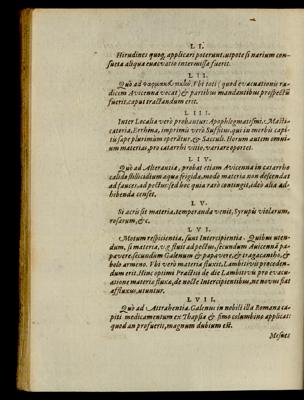 LI.
Hirudines quoq; applicari poterunt, utpote si narium con-
sueta aliqua euacuatio intermissa fuerit.
LII.
Quò ad Vbi toti (quod euacuationis ra-
dicem Avicenna vocat) & partibus mandantibus prospectũ
fuerit, caput tractandum erit.
LIII.
Inter Localia verò probantur: Apophlegmatismi, Masti-
catoria, Errhina, imprimis verò Suffitus, qui in morbis capi-
tis sæpe plurimum operantur, & Sacculi. Horum autem omni-
um materias, pro catarrhi vitio, variare oportet.
LIV.
Quò ad Alterantia, probat etiam Avicenna in catarrho
calido stillicidium aquæ frigidæ, modò materia non descendat
ad fauces, ad pectus: sed hoc quia rarò contingit, ideò alia ad-
hibenda censet.
LV.
Si acris sit materia, temperanda venit, Syrupis violarum,
rosarum, &c.
LVI.
Motum respicientia, sunt Intercipientia. Quibus uten-
dum, si materia, v.g. fluit ad pectus, secundum Avicennã pa-
pavere, secundum Galenum & papavere, & tragacantho, &
bolo armeno. Vbi verò materia fluxit, Lambitivis proceden-
dum erit. Hinc optimi Practici de die Lambitivis pro evacu-
atione materiæ fluxæ, de nocte Intercipientibus, ne novus fiat
affluxus, utuntur.
LVII.
Quò ad Attrahentia. Galenus in nobili illa Romana ca-
piti medicamentum ex Thapsia & fimo columbino applicat:
quod an profuerit, magnum dubium est.
Mesues